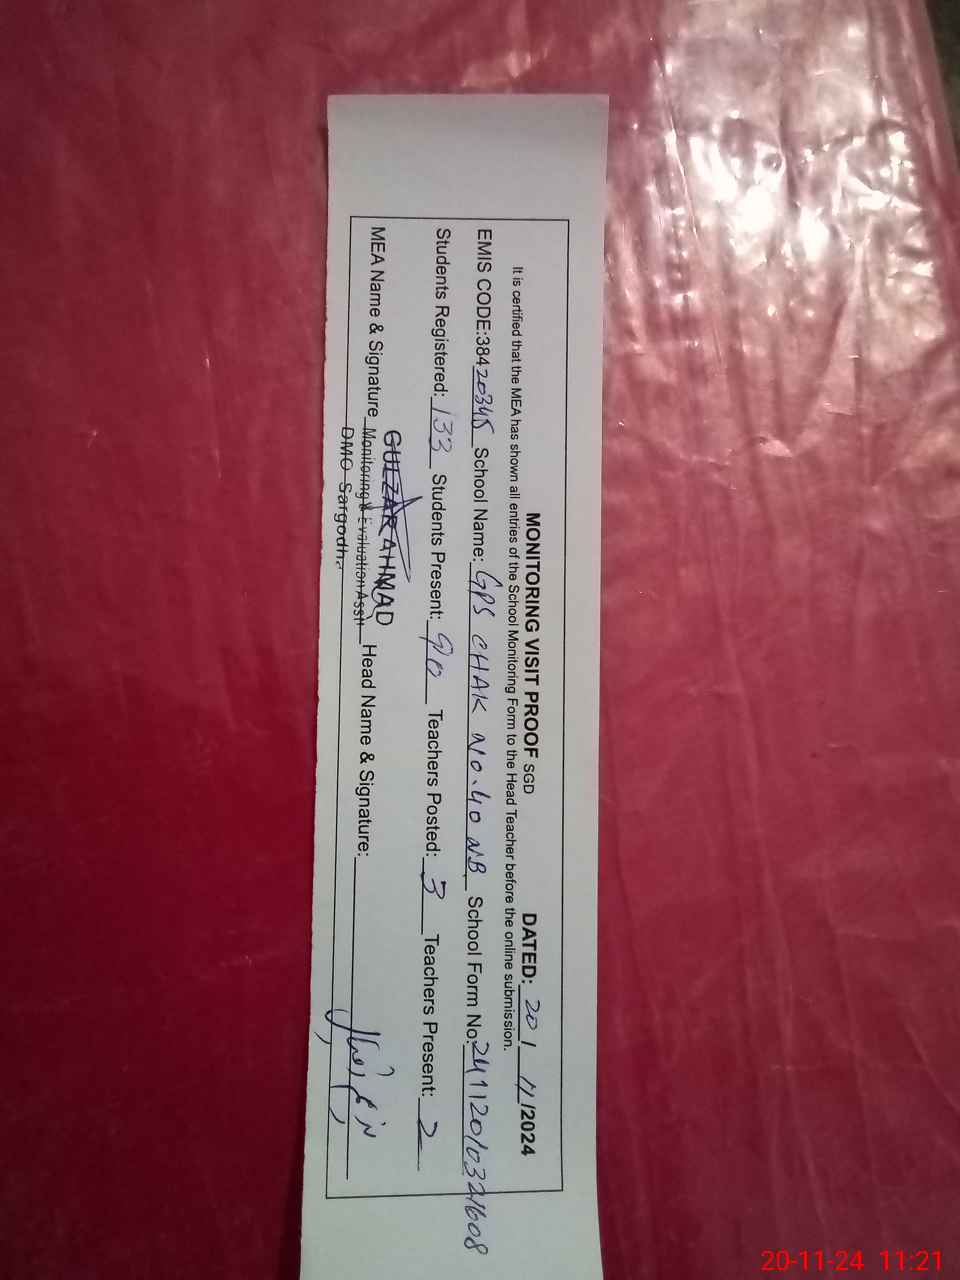 MONITORING VISIT PROOF SGD DATED: 20 / 11 /2024
It is certified that the MEA has shown all entries of the School Monitoring Form to the Head Teacher before the online submission.
EMIS CODE:38420345 School Name: GPS CHAK NO.40 NB School Form No:
Students Registered: 133 Students Present: 90 Teachers Posted: 3 Teachers Present: 2
GULZAR AHMAD
MEA Name & Signature Monitoring & Evaluation Asstt Head Name & Signature:
DMO Sargodha
20-11-24 11:21